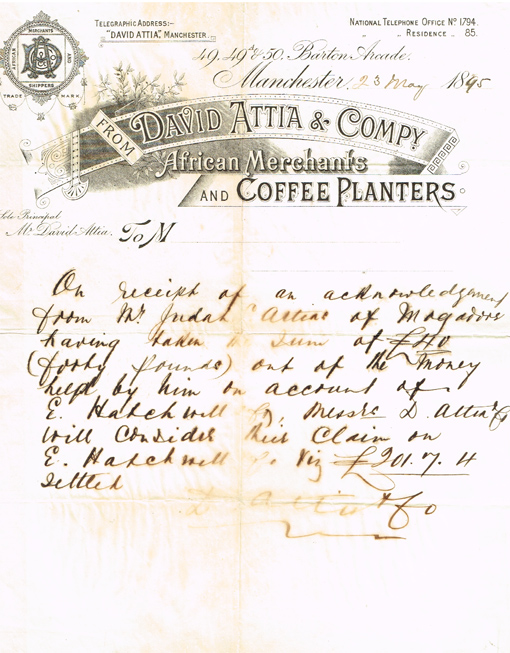 TELEGRAPHIC ADDRESS:-
"DAVID ATTIA," MANCHESTER.
NATIONAL TELEPHONE OFFICE No 1794.
" " RESIDENCE " 85.
MERCHANTS
AND
SHIPPERS
AFRICAN
TRADE MARK
49, 49a & 50, Barton Arcade,
Manchester, 23 May 1895
FROM
DAVID ATTIA & COMPY
African Merchants
AND COFFEE PLANTERS
Sole Principal
Mr David Attia.
To M
On receipt of an acknowledgement
from Mr Judah Attias of Mogador
having taken sum of £40
(forty pounds) out of the money
held by him on account of
E. Hatchwell Co, Messrs D. Attia & Co
will consider their claim on
E. Hatchwell Co viz £201.7.4
settled
D Attia & Co